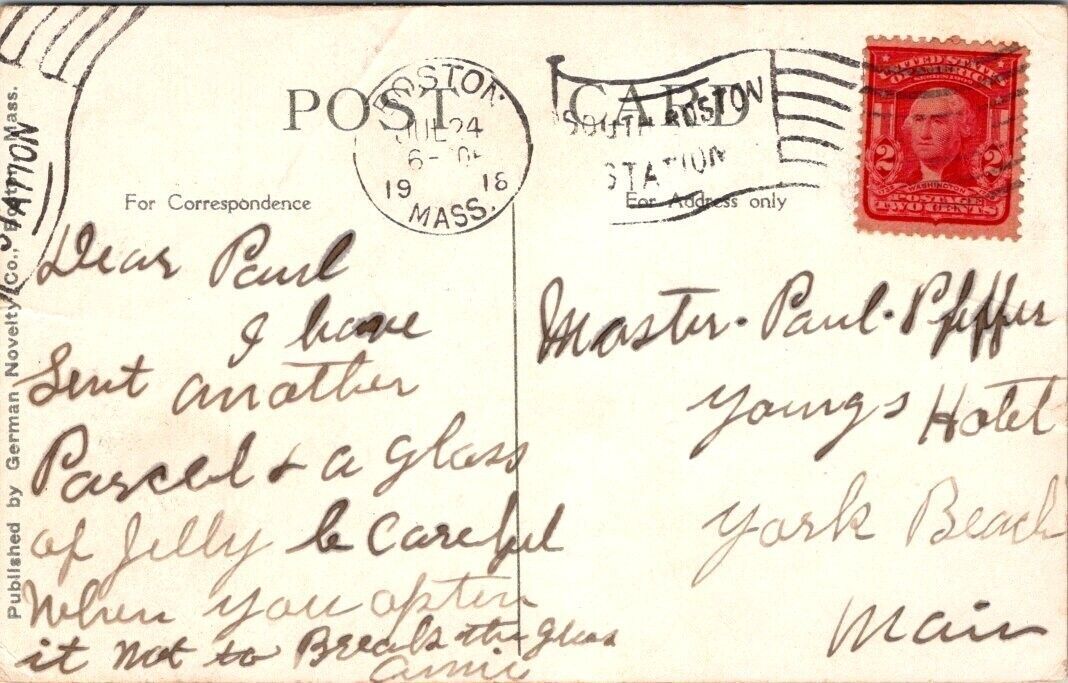 POST CARD
BOSTON
JUL 24
6-
19 18
MASS.
SOUTH BOSTON
STATION
STATION
UNITED STATES
OF AMERICA
2 2
WASHINGTON
POSTAGE
TWO CENTS
For Correspondence
For Address only
Dear Paul
I have
Sent another
Parcel & a glass
of Jelly be careful
When you open
it not to Break the glass
Annie
Master. Paul. Pfeffer
Youngs Hotel
York Beach
Main
Published by German Novelty Co., Boston, Mass.